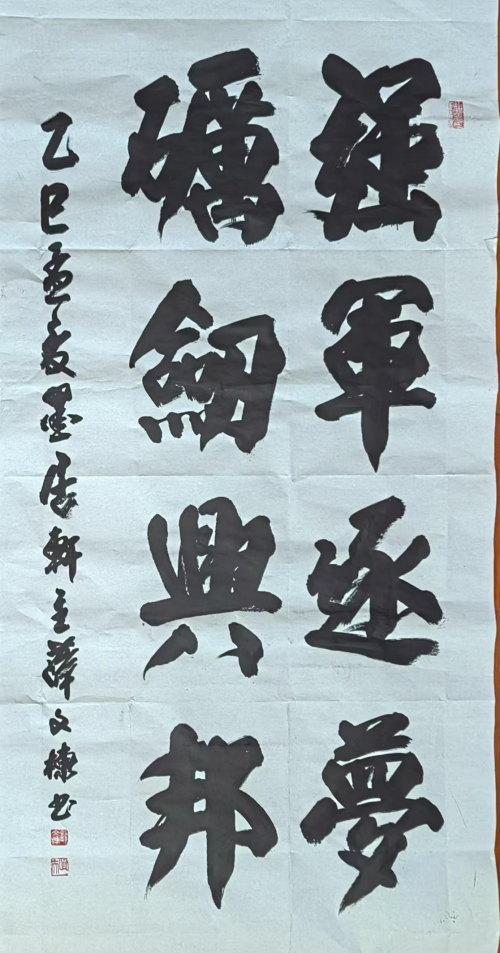 强軍逐夢
礪劍興邦
乙巳孟夏墨居軒主薛文棟書